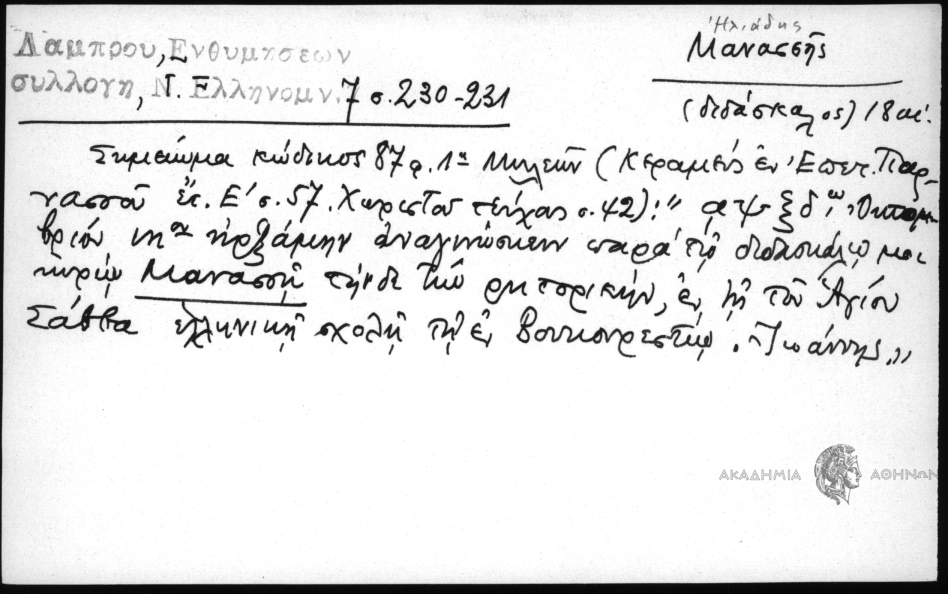 Λαμπρου, Ενθυμησεων
συλλογη, Ν. Ελληνομν. 7 σ. 230-231
Ἠλιάδης
Μανασσῆς
(διδάσκαλος) 18 αἰ.
Σημείωμα κώδικος 87 φ. 1α Μηλεῶν (Κεραμεὺς ἐν Ἐπετ. Παρ-
νασσοῦ ἔτ. Ε' σ. 57. Χωριστοῦ τεύχος σ. 42): "αψξδ,ῳ Ὀκτωμ-
βρίου ιηῃ ἠρξάμην ἀναγινώσκειν παρὰ τῷ διδασκάλῳ μου
κυρίῳ Μανασσῇ τήνδε τὴν ρητορικήν, ἐν τῇ τοῦ Ἁγίου
Σάββα ἑλληνικῇ σχολῇ τῇ ἐν Βουκουρεστίῳ. Ἰωάννης"
ΑΚΑΔΗΜΙΑ ΑΘΗΝΩΝ